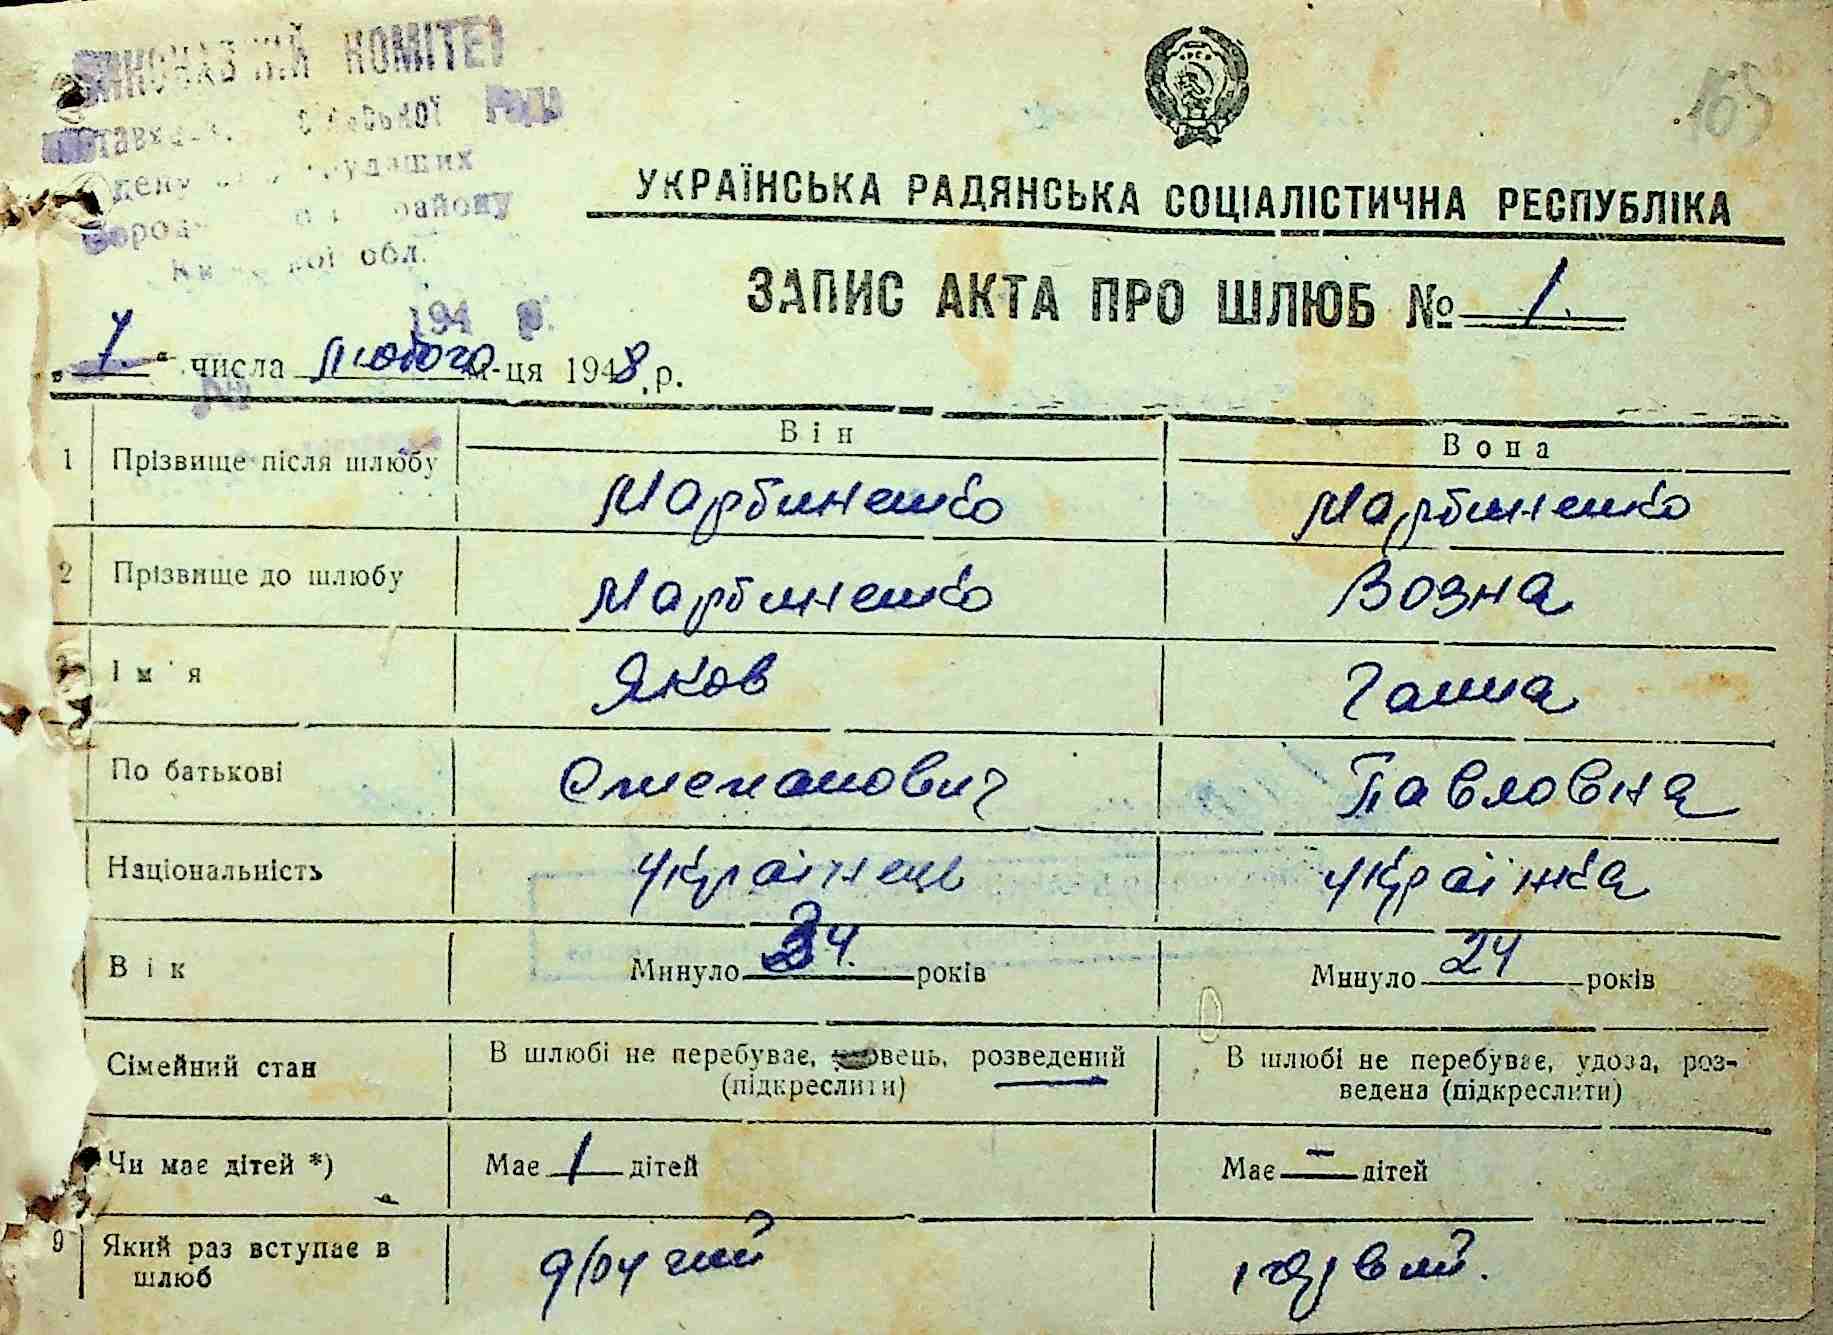 КОМІТЕТ
Ради
району
обл.
194 р.
165
УКРАЇНСЬКА РАДЯНСЬКА СОЦІАЛІСТИЧНА РЕСПУБЛІКА
ЗАПИС АКТА ПРО ШЛЮБ № 1.
„7“ числа лютого м-ця 1948 р.
Він Вона
1 Прізвище після шлюбу Мартиненко Мартиненко
2 Прізвище до шлюбу Мартиненко Возна
3 Ім'я Яков Ганна
По батькові Степанович Павловна
Національність українець українка
Вік Минуло 34. років Минуло 24 років
Сімейний стан В шлюбі не перебуває, удовець, розведений В шлюбі не перебуває, удова, роз-
(підкреслити) ведена (підкреслити)
Чи має дітей *) Має 1 дітей Має – дітей
9 Який раз вступає в
шлюб другий первий.